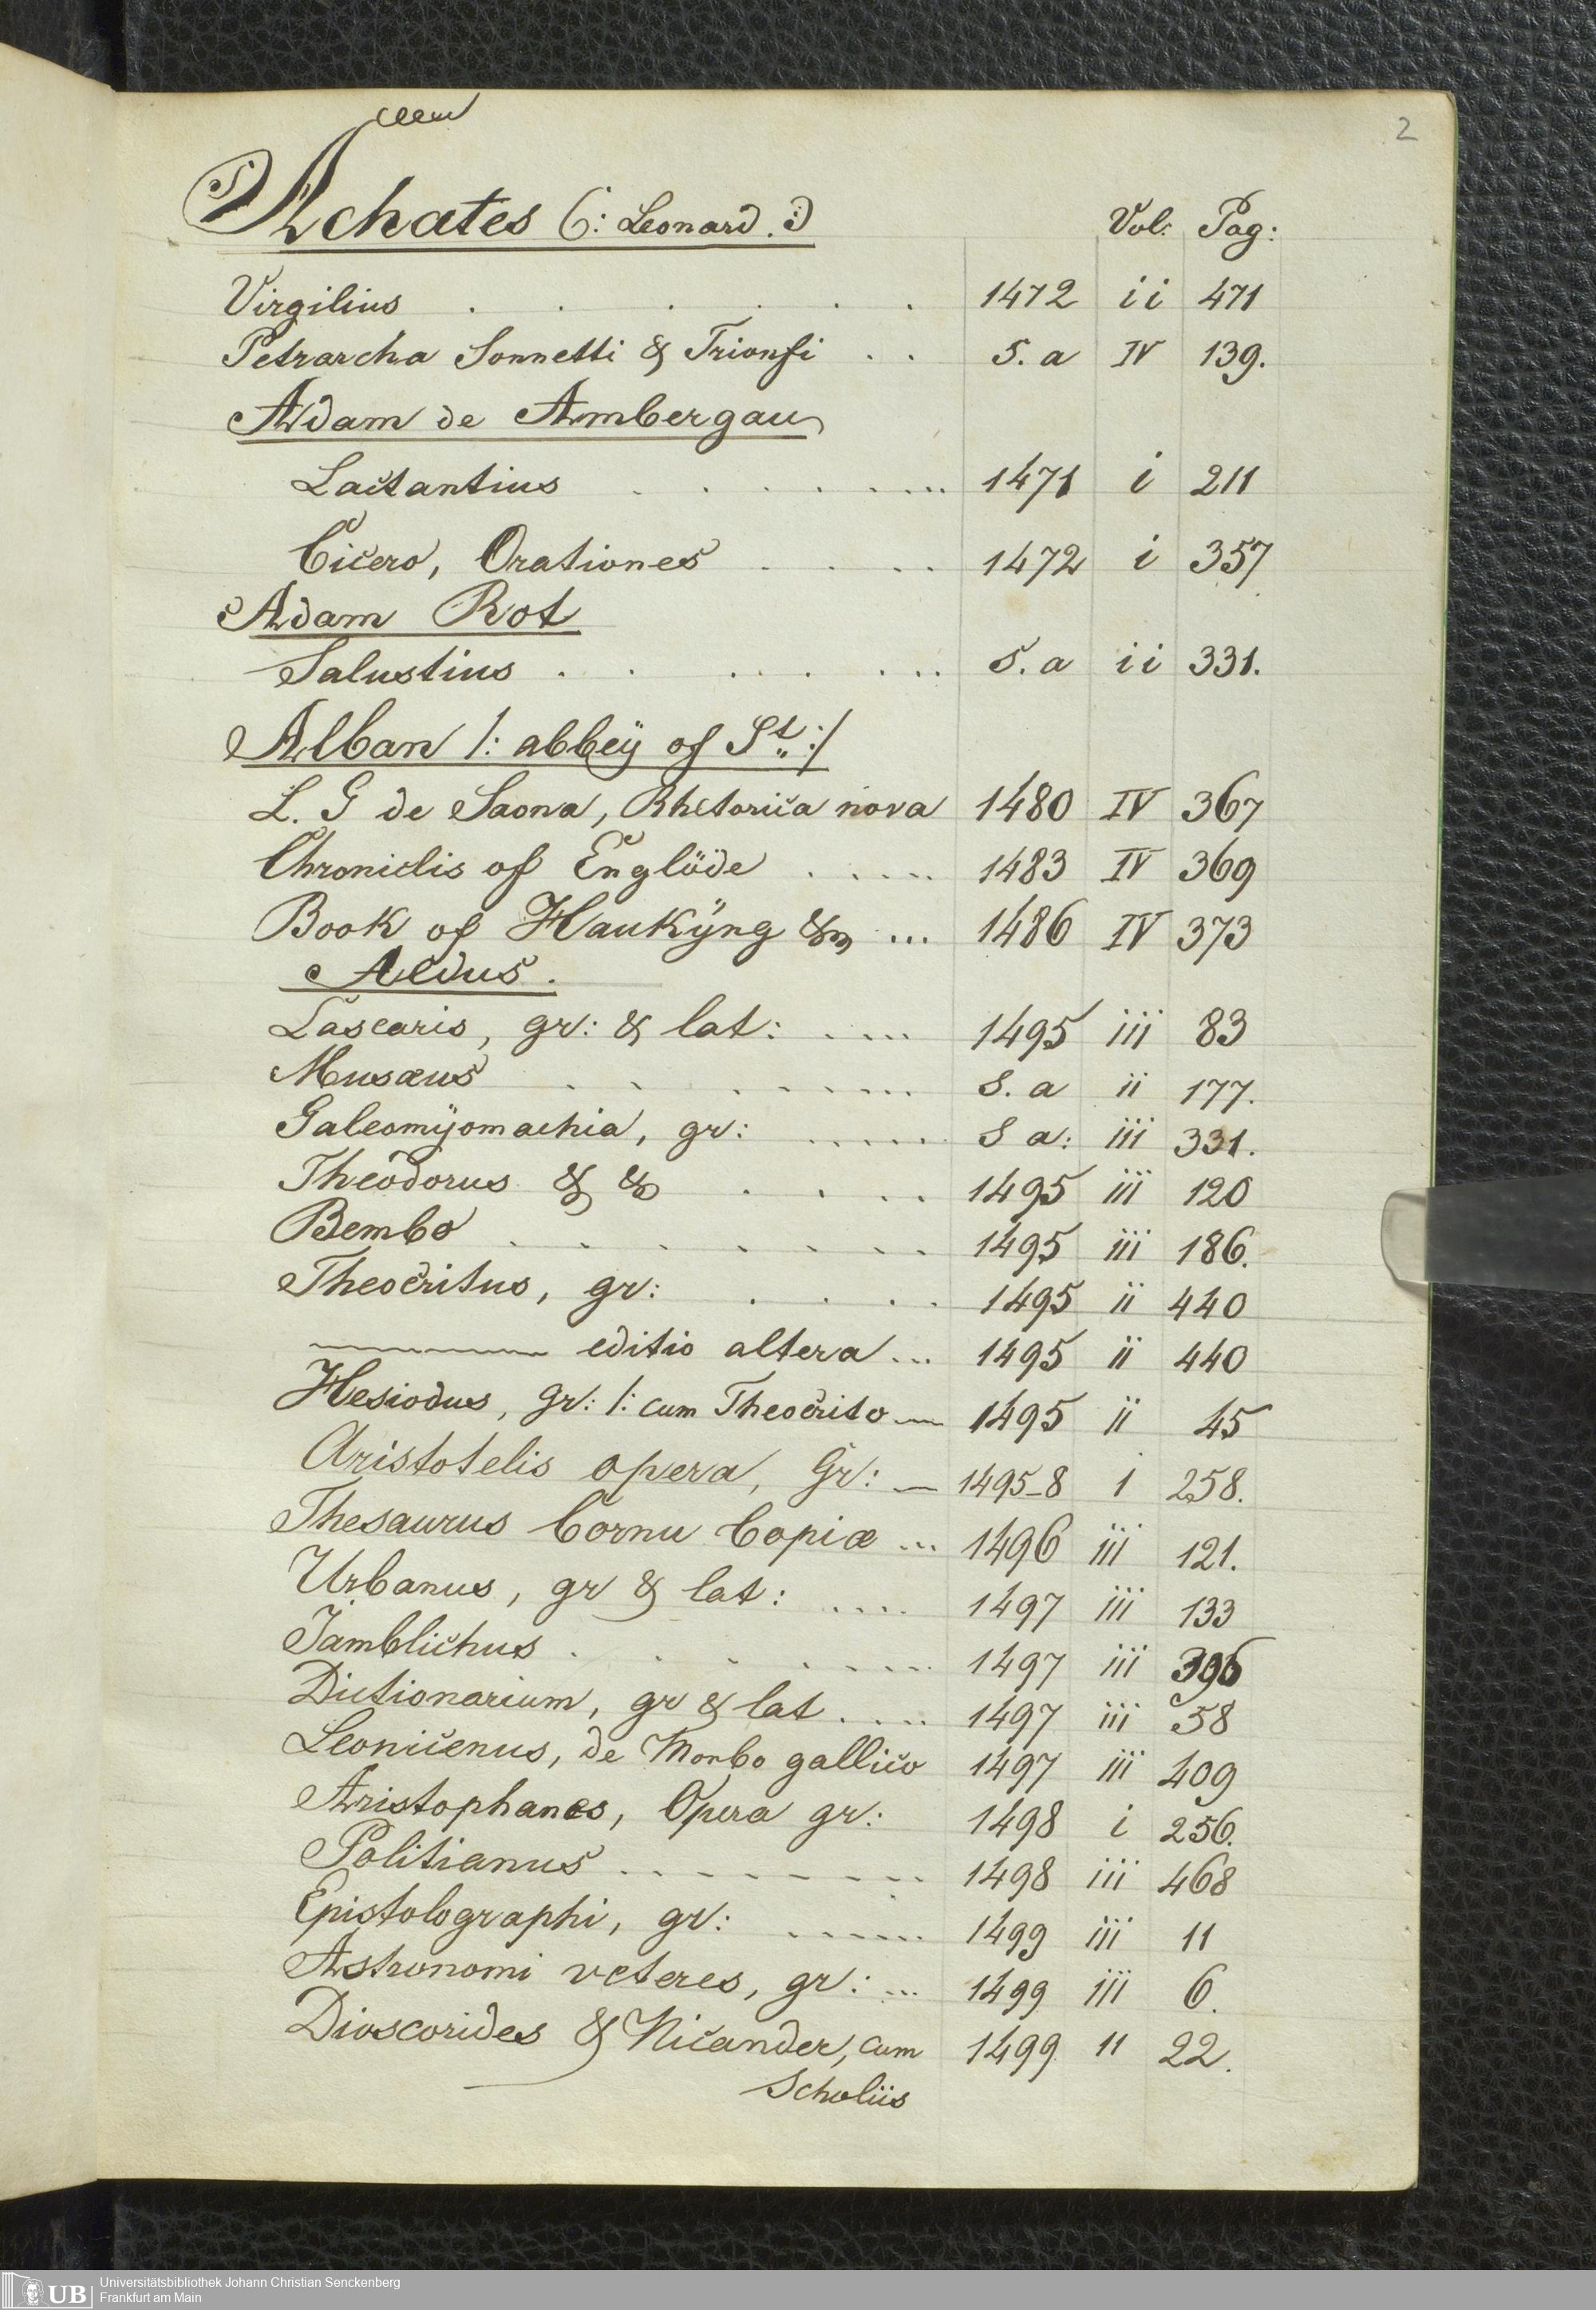 2
Achates (: Leonard. :) Vol: Pag:
Virgilius . . . . . . 1472 ii 471
Petrarcha Sonnetti & Trionfi . . S. a IV 139.
Adam de Ambergau
Lactantius . . . . . . . . 1471 i 211
Cicero, Orationes . . . . 1472 i 357
Adam Rot
Salustius . . . . . . . S. a ii 331.
Alban /: abbeÿ of St. :/
L. G de Saona, Rhetorica nova 1480 IV 367
Chroniclis of Englöde . . . . . 1483 IV 369
Book of Haukÿng & ... 1486 IV 373
Aldus.
Lascaris, gr: & lat: . . . . 1495 iii 83
Musæus . . . . . . . . S. a ii 177.
Galeomÿomachia, gr: . . . . . S a: iii 331.
Theodorus & & . . . . 1495 iii 120
Bembo . . . . . . . 1495 iii 186.
Theocritus, gr: . . . . 1495 ii 440
——— editio altera ... 1495 ii 440
Hesiodus, gr: /: cum Theocrito — 1495 ii 45
Aristotelis opera, Gr: — 1495-8 1 258.
Thesaurus Cornu Copiæ ... 1496 iii 121.
Urbanus, gr & lat: .... 1497 iii 133
Jamblichus . . . . . . . . 1497 iii 396
Dictionarium, gr & lat . . . . 1497 iii 58
Leonicenus, de Morbo gallico 1497 iii 409
Aristophanes, Opera gr: 1498 i 256.
Politianus . . . . . . . . 1498 iii 468
Epistolographi, gr: . . . . . . 1499 iii 11
Astronomi veteres, gr: ... 1499 iii 6.
Dioscorides & Nicander, cum 1499 11 22.
Scholiis
UB
Universitätsbibliothek Johann Christian Senckenberg
Frankfurt am Main